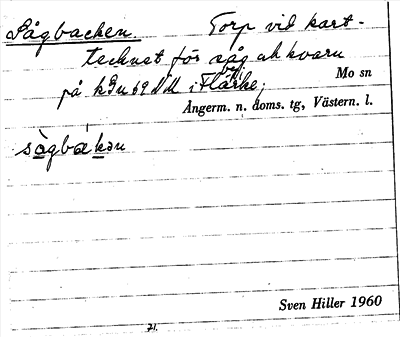 Sågbacken. Torp vid kart-
tecknet för såg och kvarn
på k 9u 69 NM i Flärke,
Mo sn
Ångerm. n. doms. tg, Västern. l.
sågbakən
Sven Hiller 1960